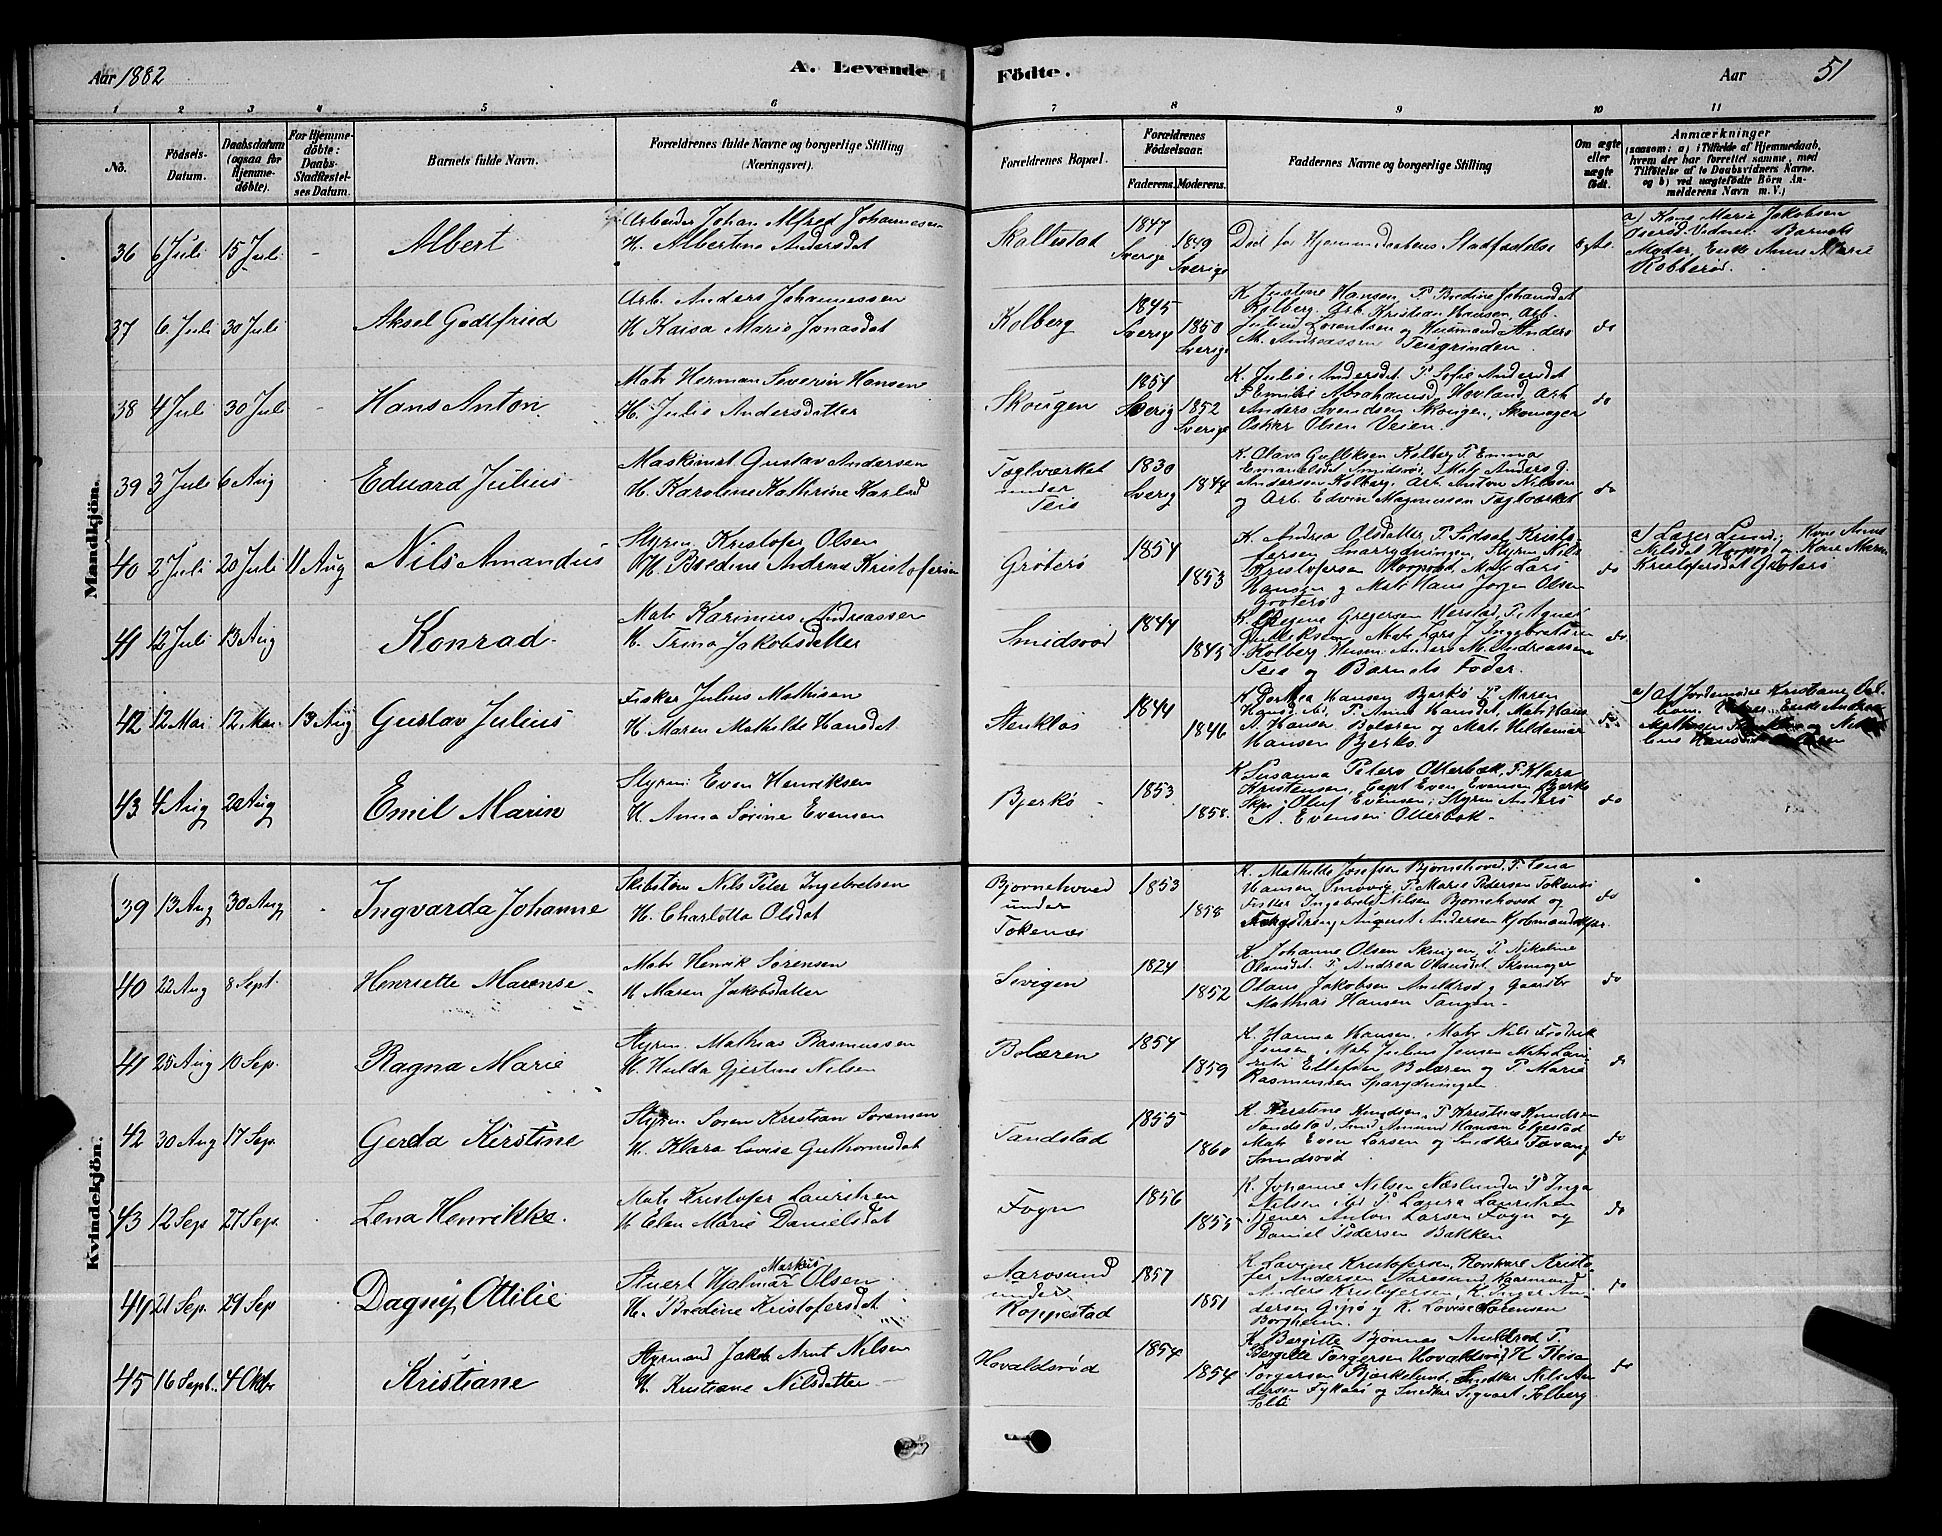 Aar 1882
A. Levende Födte.
Aar 51
1 2 3 4 5 6 7 8 9 10 11
No.
Födsels-Datum.
Daabsdatum (ogsaa for Hjemme-döbte).
For Hjemme-döbte: Daabs-Stadfæstel-ses Datum.
Barnets fulde Navn.
Forældrenes fulde Navne og borgerlige Stilling (Næringsvei).
Forældrenes Bopæl.
Forældrenes Födselsaar.
Faderens. Moderens.
Faddernes Navne og borgerlige Stilling
Om ægte eller uægte födt.
Anmærkninger
(saasom: a) i Tilfælde af Hjemmedaab, hvem der har forrettet samme, med Tilföielse af to Daabsvidners Navne. og b) ved uægtefödte Börn An-melderens Navn m. V.)
Mandkjön.
36 6 Juli 15 Juli - Albert
Arbeider Johan Alfred Johannesen
H. Albertine Andersdat
Skallestad 1847 Sverige 1849 Sverige
Död før Hjemmedaabens Stadfæstelse
a) Kone Marie Jakobsen
Vidner: Barnets
Moder, Enke Anne Marie
Robberød.
37 6 Juli 30 Juli Aksel Godtfried
Arb. Anders Johannessen
H. Kaisa Marie Jonasdat
Kolberg 1845 Sverig 1850 Sverige
K. Justine Hansen, P. Bredine Johansdat
Kolberg, Arb. Kristian Hansen, Arb.
Julius Lorentsen og Husmand Anders
M. Andreassen Teiegrinden.
do
38 4 Juli 30 Juli - Hans Anton
Matr Herman Severin Hansen
H. Julie Andersdatter
Skougen 1854 Sverig 1852 Sverige
K. Julie Andersdat. P. Sofie Andersdat
P. Emilie Abrahamsd Hovland, Arb
Anders Svendsen Skougen, Skomager
Oskar Olsen Veien.
do
39 3 Juli 6 Aug - Eduard Julius
Maskinist Gustav Andersen
H. Karoline Kathrine Karlsd
Teglværket under Teie 1830 Sverig 1844
K. Olava Gulliksen Kolberg P. Emma
Emanuelsdat Smidsrö, Matr Anders G.
Andersen Kolberg, Arb. Anton Nilsen
og Arb. Edvin Magnussen Teglværket
do
40 2 Juli 20 Juli 11 Aug Nils Amandus
Styrm. Kristofer Olsen
H. Bredine Andrea Kristofersen
Gröterö 1854 1853
K. Andrea Olsdatter, P. Sidsel Kristo-
fersen Snarrydningen, Styrm Nils
Kristofersen, Mat. Lars
Hansen og Mat. Hans Jörgen Olsen
Gröterö
do
a) Kone Anne
Nilsdat og Kone Maren
Kristofersdat Gröterö
41 12 Juli 13 Aug Konrad
Matr Karinius Andreassen
H. Trina Jakobsdatter
Smidsrød 1844 1845
K. Gregersen Herstad, P. Agnes
Gulliksen, Matr Lars J. Ingebretsen
Kolberg, Husm. Anders M. Andreassen
Teie og Barnets Fader.
do
42 12 Mai 12 Mai 13 Aug Gustav Julius
Fisker Julius Mathisen
H. Maren Mathilde Hansdat
Stenklös 1844 1846
K. Dorthea Hansen Bjerkö P. Maren
Hansd. ibd, P. Anna Hansdat, Matr Hans
A. Hansen Bolæren og Matr Hildemar
Hansen Bjerkö
do
a) af Jordemoder Kristiane
43 4 Aug 20 Aug Emil Marin
Styrm: Even Henriksen
H. Anna Sörine Evensen
Bjerkö 1853 1858
K. Susanna Peters Otterbæk, P. Klara
Kristensen, Capt Even Evensen Bjerkö
Skpr Oluf Evensen, Styrm Anders
A. Evensen Otterbæk.
do
Kvindekjön.
39 13 Aug 30 Aug - Ingvarda Johanne
Skibstöm Nils Peter Ingebretsen
H. Charlotta Olsdat
Bjornehoved under Tokenes 1853 1858
K. Mathilde Josefsen Bjornehoved, P. Lena
Hansen, P. Marie Pedersen Tokenes
Fisker Ingebret Nilsen Bjornehoved og
August Andersen Kjöbmandskjær.
do
40 22 Aug 8 Sept. Henriette Marense
Matr Henrik Sörensen
H. Maren Jakobsdatter
Sevigen 1824 1852
K. Johanne Olsen Skougen, P. Nikoline
Olausdat P. Andrea Olausdat. Skomager
Olaus Jakobsen og Gaardbr
Mathias Hansen Tangen.
do
41 25 Aug 10 Sep. Ragna Marie
Styrm. Mathias Rasmussen
H. Hulda Gjertine Nilsen
Bolæren 1854 1859
K. Hanna Hansen, Matr Nils Fredrik
Jensen, Matr Julius Jensen, Matr Lau-
ritz Ellefsen Bolæren og P. Maria
Rasmussen Sparrydningen
do
42 30 Aug 17 Sep. Gerda Kirstine
Styrm. Sören Kristian Sörensen
H. Klara Lovise Guthormsdat
Tandstad 1855 1860
K. Kirstine Knudsen, P. Kristine Knudsen
Tandstad, Smd Amund Hansen Elgestad
Matr Even Larsen og Snedker
Smidsrød
do
43 12 Sep 27 Sep. Lena Henrikke.
Matr Kristofer Lauritzen
H. Elen Marie Danielsdat
Föyn 1856 1855
K. Johanne Nilsen Næslunden P. Inga
Nilsen ibd P. Laura Lauritzen
Anton Larsen Föyn og
Daniel Pedersen Bakken
do
44 21 Sep. 29 Sep Dagny Ottilie
Stuert Hjalmar Markus Olsen
H. Bredine Kristofersdat
Aarøsund under Roppestad 1857 1851
K. Lavine Kristofersen,
Andersen Aarøsund,
Anders Kristofersen, K. Inger An-
dersen Gipö og K. Lovise Sörensen
Borgheim.
do
45 16 Sept. 4 Oktbr Kristiane
Styrmand Jakob Arnt Nilsen
H. Kristiane Nilsdatter
Hovaldsröd 1854 1854
K. Bergitte Bjönnes P.
Bergitte Torgersen Hovaldsröd, K.
Torgersen Bjerkelund, Snedker Nils An-
dersen og Snedker Sigvart Folberg
do